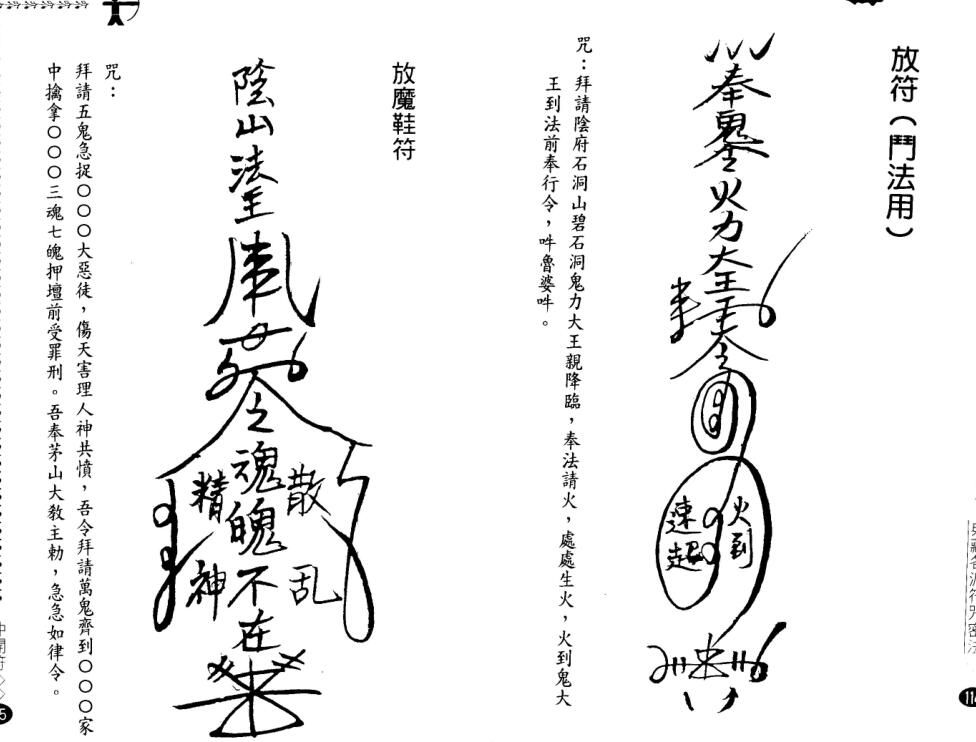 放符（鬥法用）
奉鬼
火力大王
令
火到
速起
咒：拜請陰府石洞山碧石洞鬼力大王親降臨，奉法請火，處處生火，火到鬼大
王到法前奉行令，吽魯婆吽。
放魔鞋符
陰山法主
令
魂魄不在
散乱
精神
咒：
拜請五鬼急捉○○○大惡徒，傷天害理人神共憤，吾令拜請萬鬼齊到○○○家
中擒拿○○○三魂七魄押壇前受罪刑。吾奉茅山大敎主勅，急急如律令。